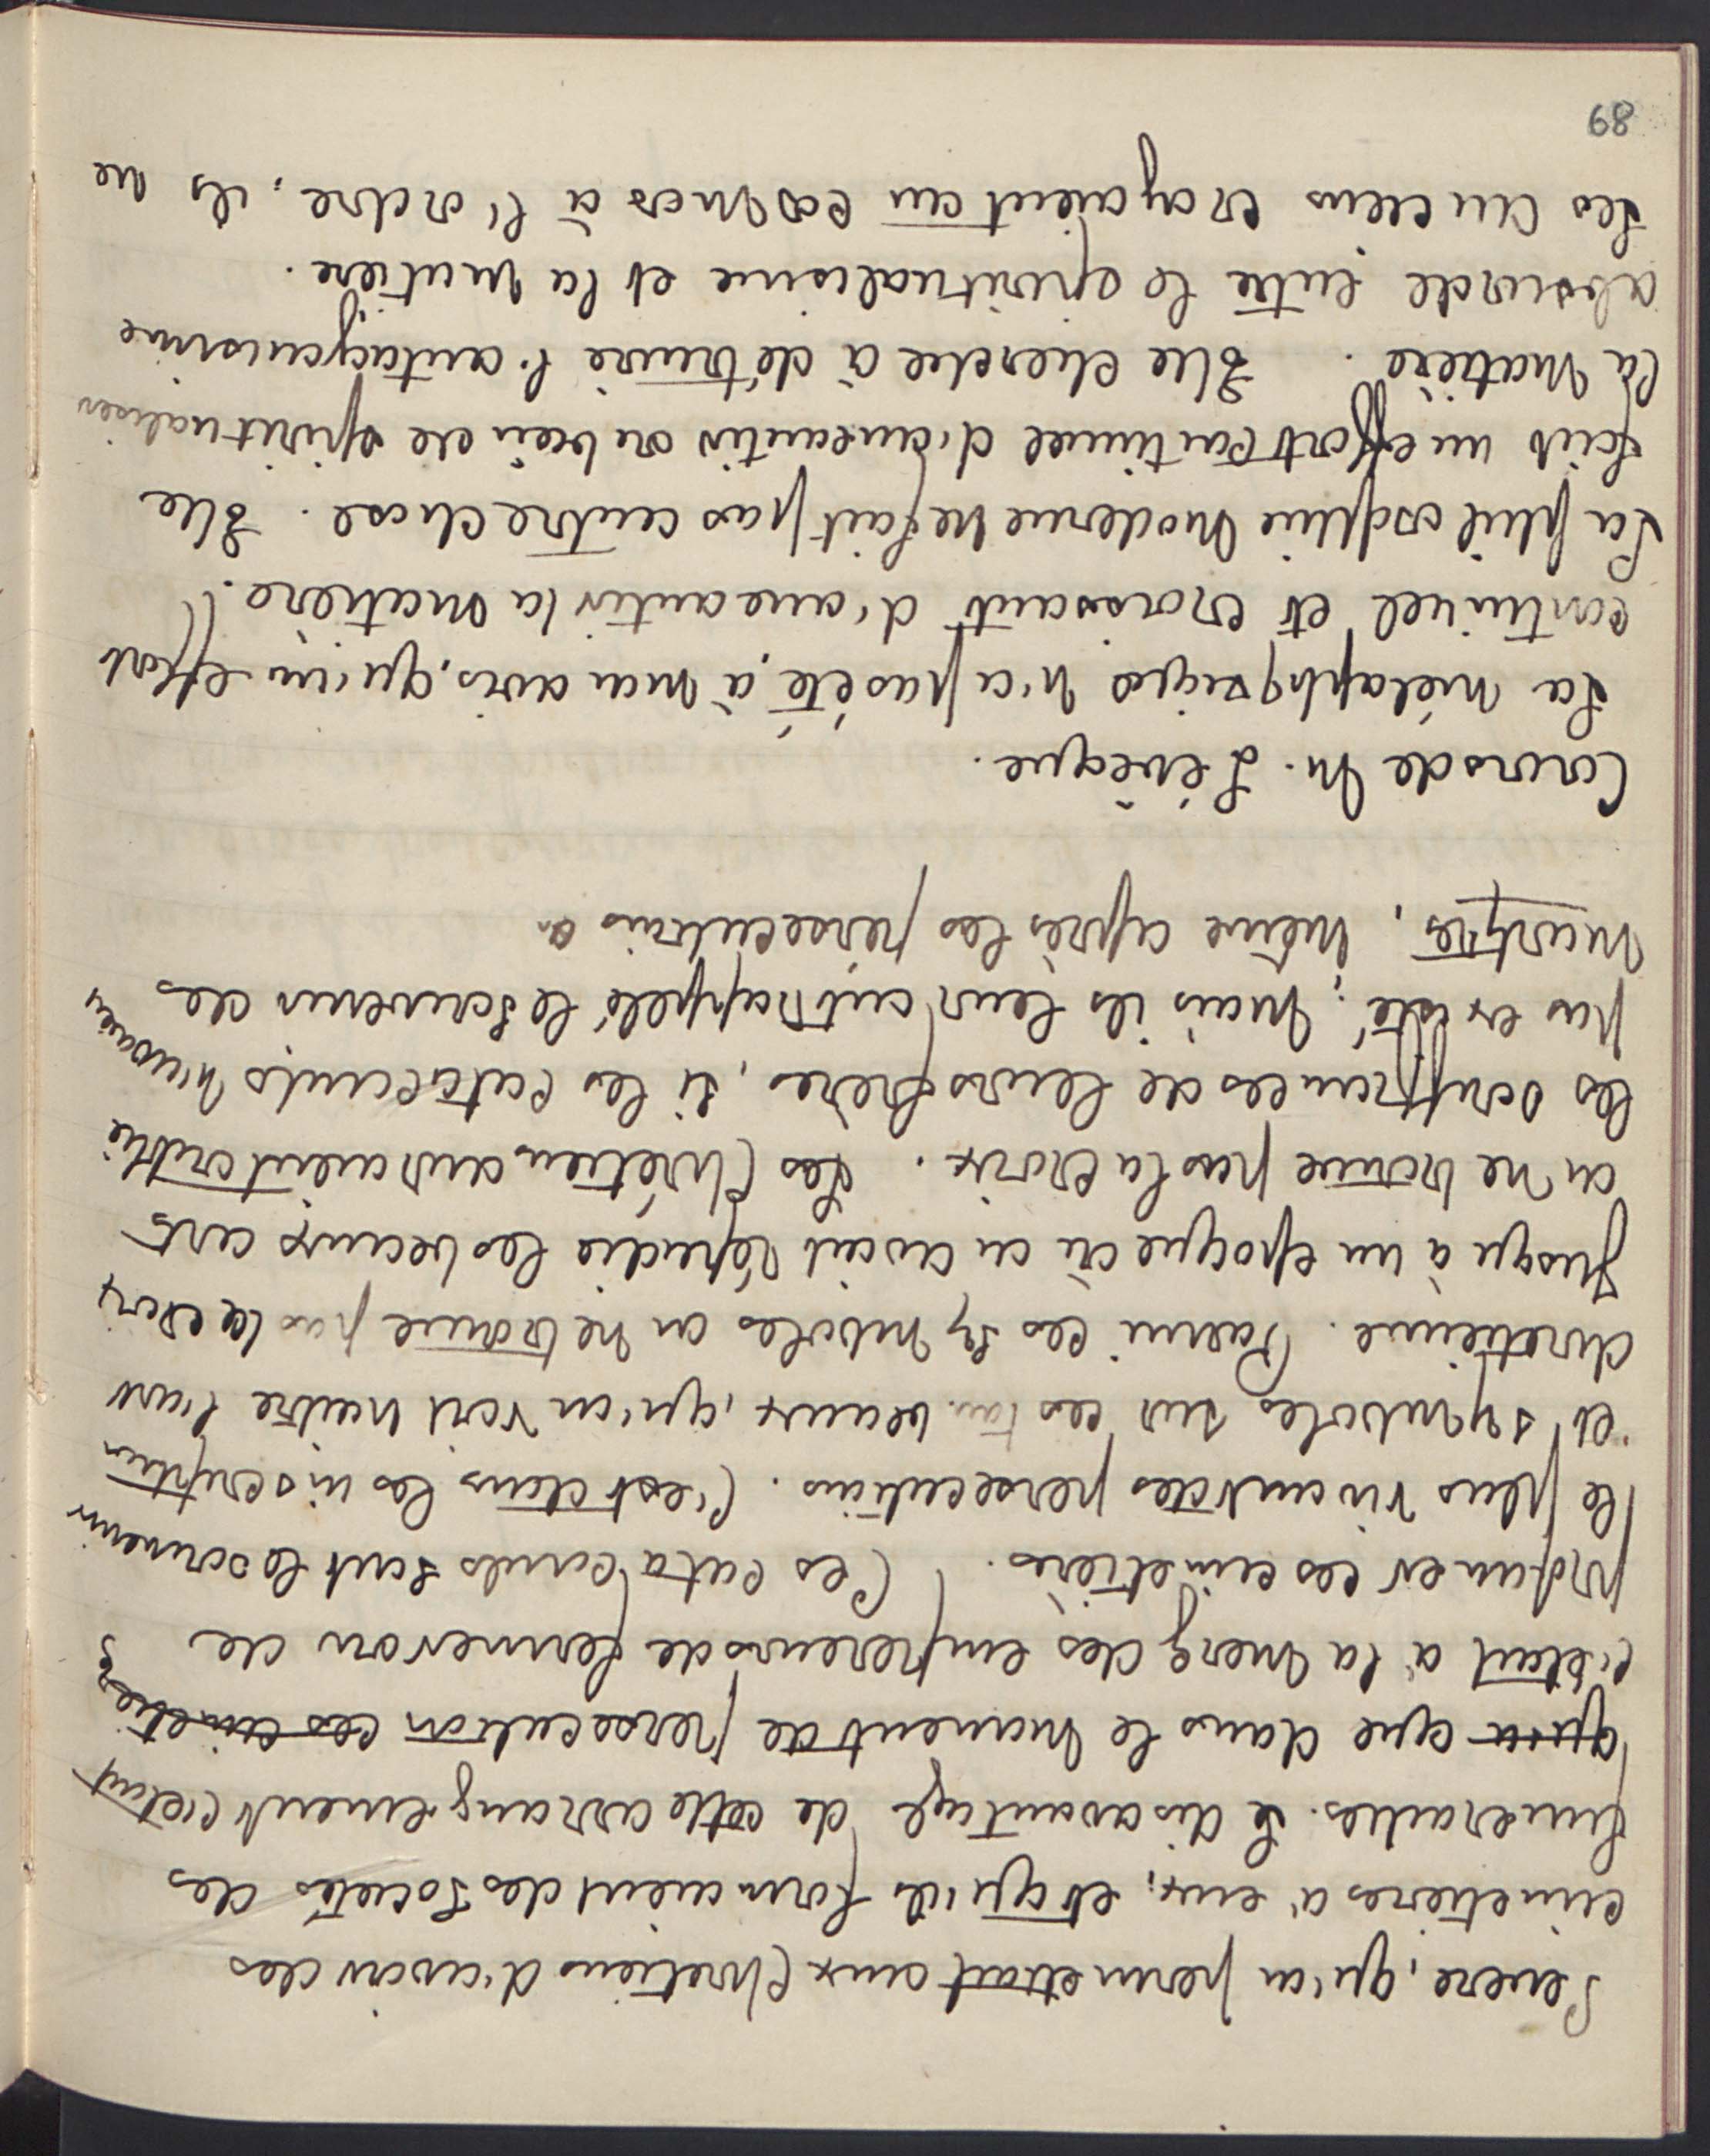 Severe, qu'on permettait aux Chretiens d'avoir des
cimetieres à eux; et qu'ils formaient des Societés des
funerailles. Le disavantage de cette arrangement c'etait
que dans le moment de persecution ces cimetieres
c'etait à la mercy des empereurs de fermer ou de
profaner ces cimetières. Ces catacombs sont le souvenir
le plus vivant des persecutions. C'est dans les inscription
et symboles sur ces tombeaux, qu'on voit naitre l'art
chretienne. Parmi ces symboles on ne trouve pas la croix
jusqu'à un epoque où on avait répudié les beaux arts
on ne trouve pas la croix. Les Chrétien auraient oublié
les souffrances de leurs frères, si les catacombs n'avaien
pas existé; mais ils leur ont rappelé le souvenir des
martyres, même après les persecutions.
Cours de M. Lévêque.
La métaphyziqes n'a pas été, à mon avis, qu'un effort
continuel et croissant d'aneantir la matière.
La philosophie moderne ne fait pas centre chose. Elle
fait un effort continuel d'aneantir ou bien de spiritualiser
la matière. Elle cherche à détruire l'antagonisme
absurde entre le spiritualisme et la matière.
Les anciens croyaient au cosmos à l'ordre, ils ne
68